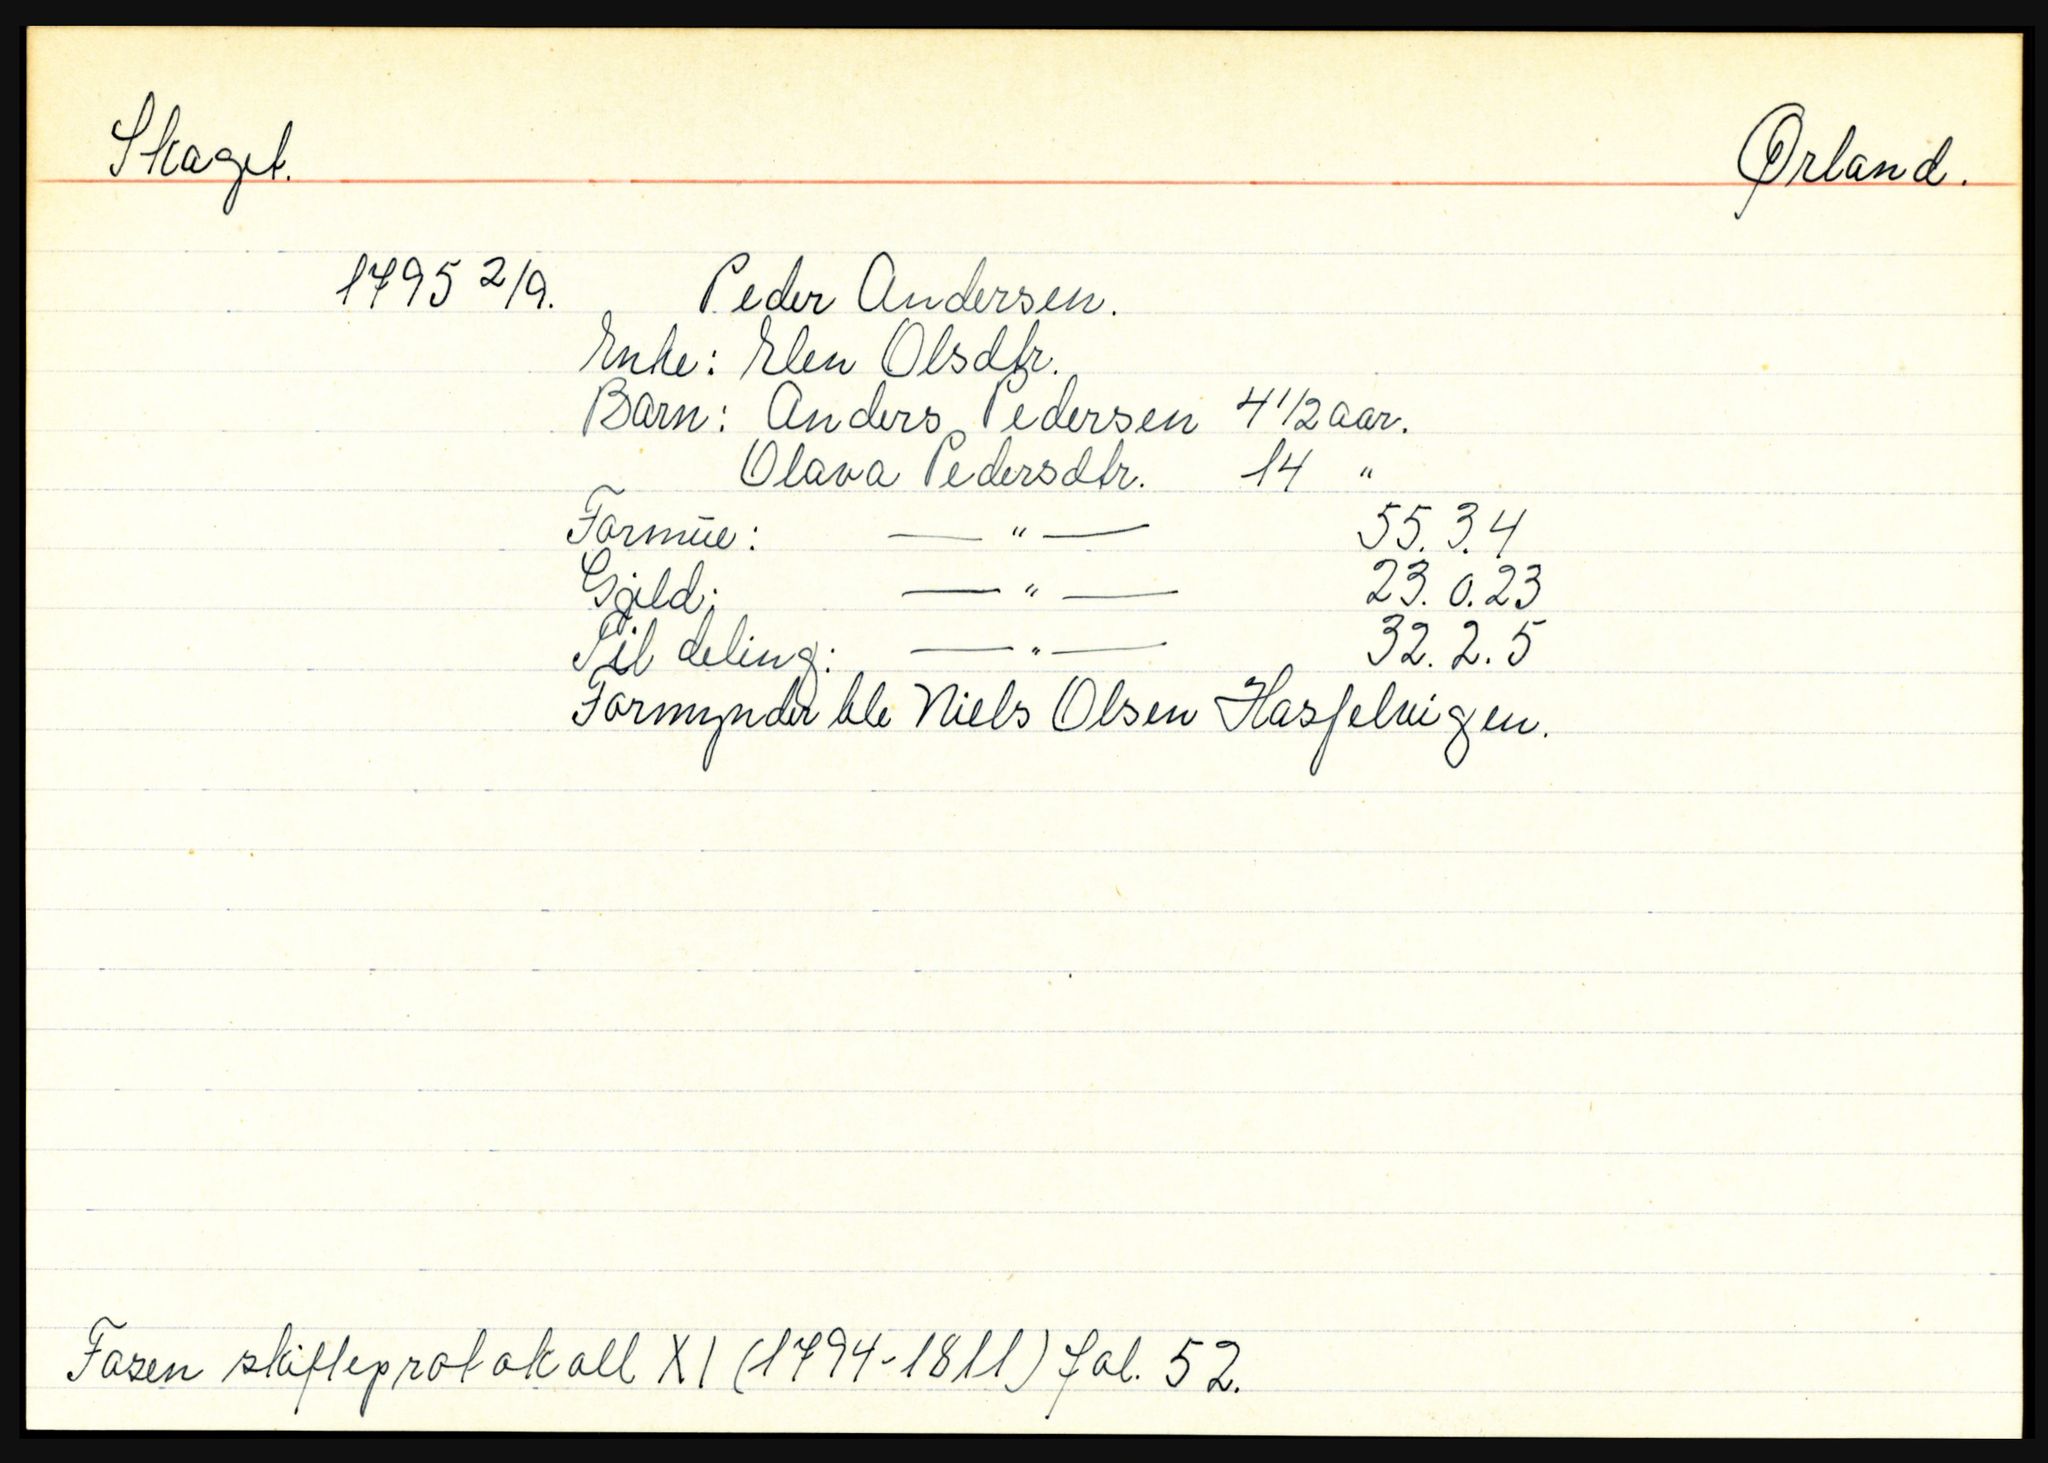 Skaget.
Ørland.
1795 2/9. Peder Andersen.
Enke: Elen Olsdtr.
Barn: Anders Pedersen 4 1/2 aar.
Olava Pedersdtr. 14 "
Formue: — " — 55. 3. 4
Gjeld: — " — 23. 0. 23
Til deling: — " — 32. 2. 5
Formynder ble Niels Olsen Hasselvigen.
Fosen skifteprotokoll XI (1794-1811) fol. 52.